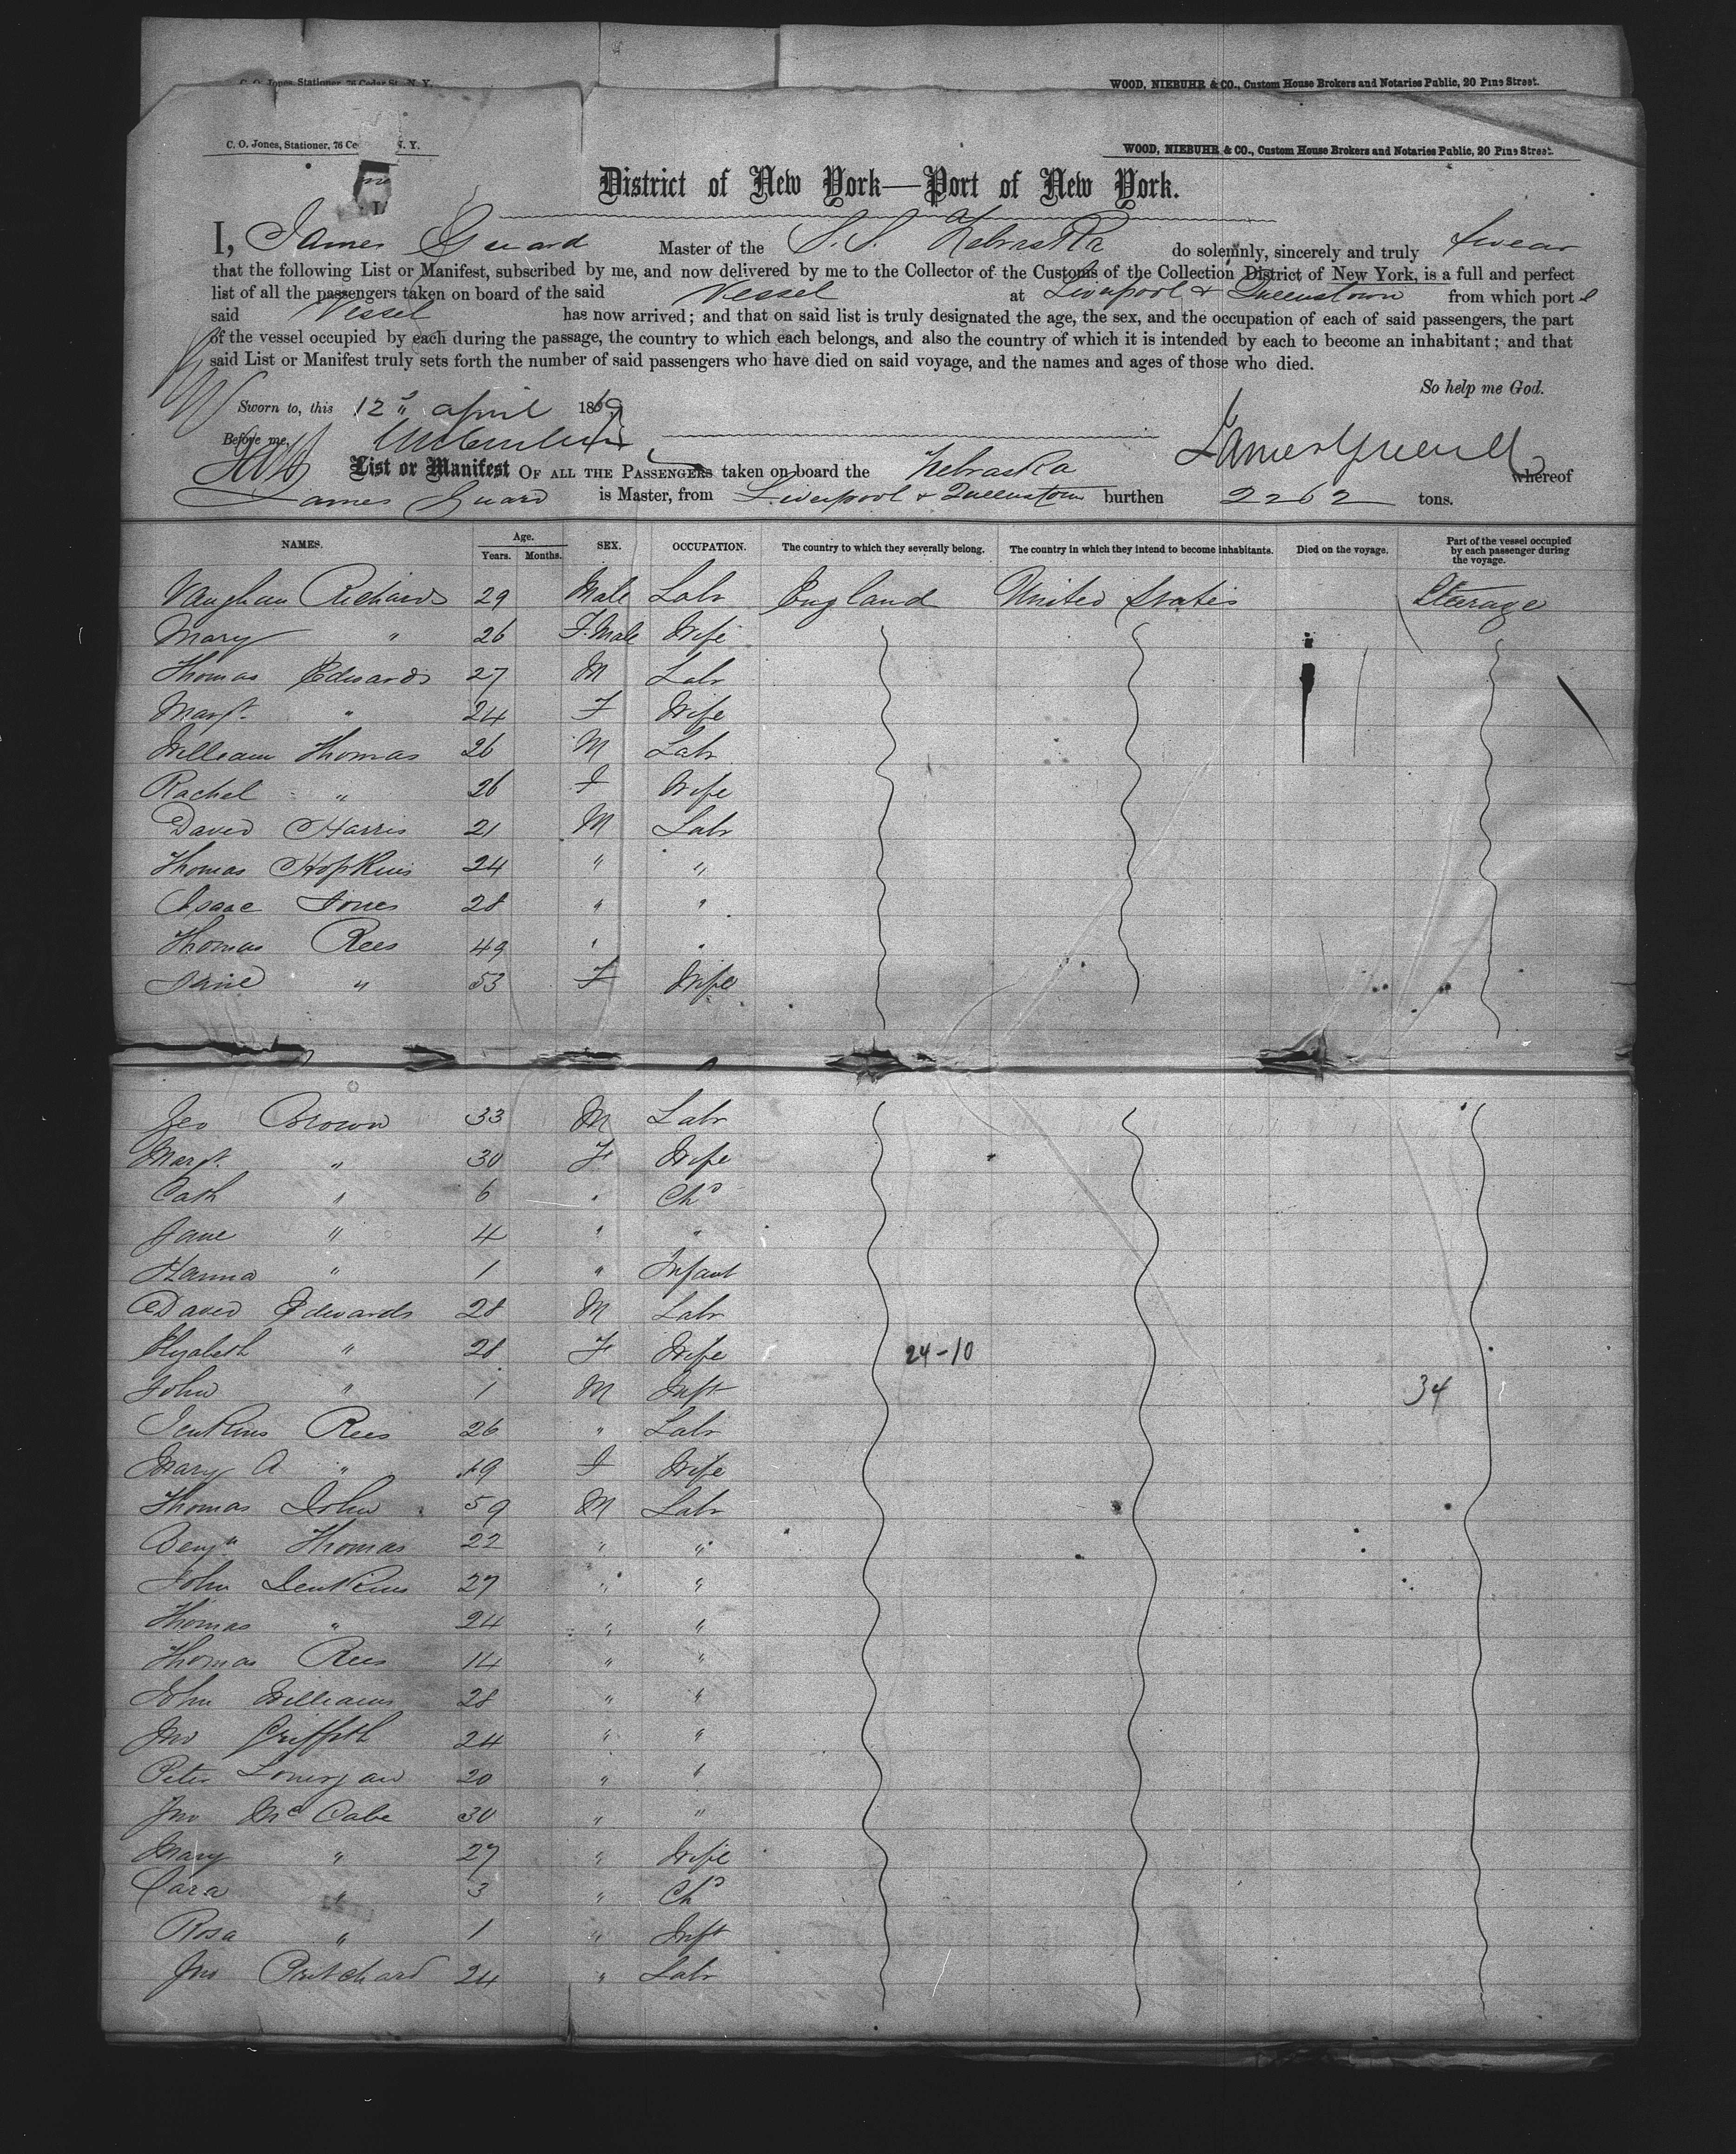 C. O. Jones, Stationer, 76 Cedar St., N. Y.
WOOD, NIEBUHR & CO., Custom House Brokers and Notaries Public, 20 Pine Street.
C. O. Jones, Stationer, 76 Ce N. Y.
WOOD, NIEBUHR & CO., Custom House Brokers and Notaries Public, 20 Pine Street.
District of New York—Port of New York.
I, James Guard Master of the S.S. Nebraska do solemnly, sincerely and truly swear
that the following List or Manifest, subscribed by me, and now delivered by me to the Collector of the Customs of the Collection District of New York, is a full and perfect
list of all the passengers taken on board of the said Vessel at Liverpool & Queenstown from which port
said Vessel has now arrived; and that on said list is truly designated the age, the sex, and the occupation of each of said passengers, the part
of the vessel occupied by each during the passage, the country to which each belongs, and also the country of which it is intended by each to become an inhabitant; and that
said List or Manifest truly sets forth the number of said passengers who have died on said voyage, and the names and ages of those who died.
So help me God.
Sworn to, this 12 April 1869
Before me,
James Guard
List or Manifest OF ALL THE PASSENGERS taken on board the Nebraska whereof
James Guard is Master, from Liverpool & Queenstown burthen 2262 tons.
NAMES. Age. Years. Months. SEX. OCCUPATION. The country to which they severally belong. The country in which they intend to become inhabitants. Died on the voyage. Part of the vessel occupied by each passenger during the voyage.
Vaughan Richards 29 Male Labr England United States Steerage
Mary " 26 F.Male Wife
Thomas Edwards 27 M Labr
Margt. " 24 F Wife
William Thomas 26 M Labr
Rachel " 26 F Wife
David Harris 21 M Labr
Thomas Hopkins 24 " "
Isaac Jones 28 " "
Thomas Rees 49 " "
Jane " 53 F Wife
Geo Brown 33 M Labr
Margt. " 30 F Wife
Cath " 6 " Chd
Jane " 4 " "
Hanna " 1 " Infant
David Edwards 28 M Labr
Elizabeth " 28 F Wife 24-10
John " 1 M Inft 34
Jenkins Rees 26 " Labr
Mary A " 49 F Wife
Thomas John 59 M Labr
Benjn Thomas 22 " "
John Jenkins 27 " "
Thomas " 24 " "
Thomas Rees 14 " "
John Williams 28 " "
Jno Griffith 24 " "
Peter Lonergan 20 " "
Jno McCabe 30 " "
Mary " 27 " Wife
Cara " 3 " Chd
Rosa " 1 " Inft
Jno Pritchard 24 " Labr